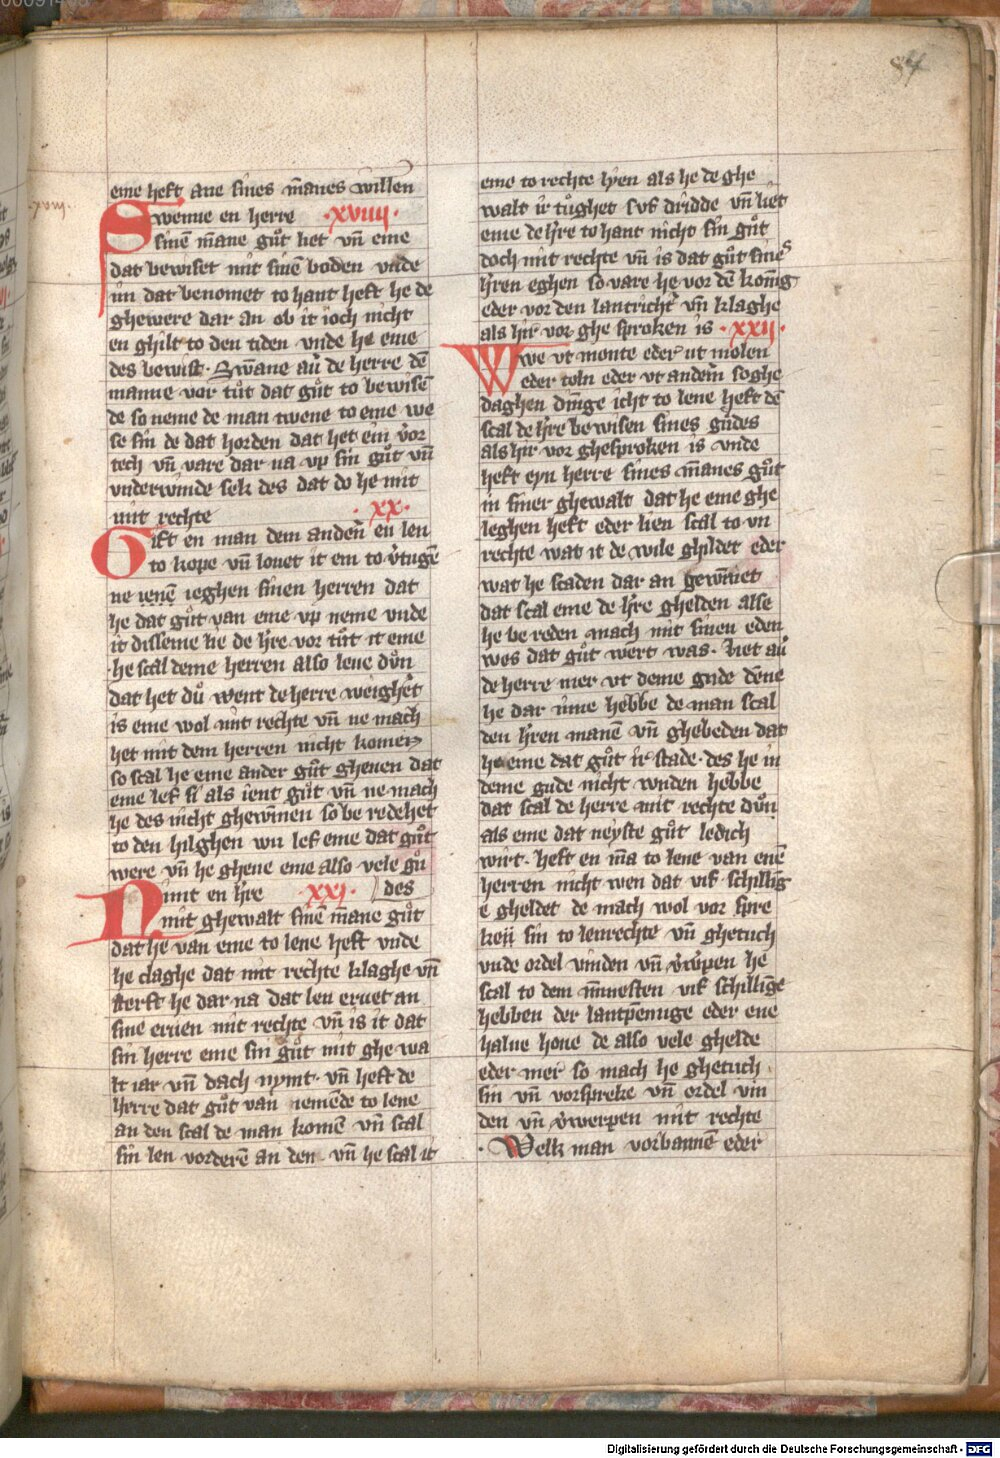 84
eme heft ane sines mānes willen
Swenne en herre ·xviiii·
sinē mane gůt liet vn̄ eme
dat bewiset mit sinē boden vnde
un dat benomet to hant heft he de
ghewere dar an ob it ioch nicht
en ghilt to den tiden vnde he eme
des bewist· Swāne au᷑ de herre dē
manne vor tůt dat gůt to bewisē
de so neme de man twene to eme we
se sin de dat horden dat het ein v᷑or
tech vn̄ vare dar na vp sin gůt vn̄
vnderwinde sek des dat do he mit
mit rechte ·xx·
Gift en man dem anden᷑ en len
to kope vn̄ louet it em to v᷑tigē
ne ienē ieghen sinen herren dat
he dat gůt van eme vp neme vnde
it disseme lie de h᷑re vor tůt it eme
·he scal deme herren also leue dův
dat het dů went de herre weigh᷑t
is eme wol mit rechte vn̄ ne mach
het mit dem herren nicht komen
so scal he eme ander gůt gheuen dat
eme lef si als ient gůt vn̄ ne mach
he des nicht ghewinnen so be redehet
to den hilghen wu lef eme dat gůt
were vn̄ he gheue eme also vele gů
Nimt en h᷑re ·xxi· des
mit ghewalt sinē māne gůt
dat he van eme to lene heft vnde
he claghe dat mit rechte klaghe vn̄
sterft he dar na dat len eruet an
sine eruen mit rechte vn̄ is it dat
sin herre eme sin gůt mit ghe wa
lt iar vn̄ dach nymt· vn̄ heft de
herre dat gůt van iemēde to lene
an den scal de man komē vn̄ scal
sin len vorderē an den vn̄ he scal it
eme to rechte lyen als he de ghe
walt ir tůghet sulf dridde vn̄ liet
eme de h᷑re to hant nicht sin gůt
doch mit rechte vn̄ is dat gůt sines
h᷑ren eghen so vare he vor dē konig
eder vor den lantricht᷑ vn̄ klaghe
als hir vor ghe sproken is ·xxii·
Wwe vt monte eder ut molen
eder toln eder vt anderm soghe
daghen dinge icht to lene heft dē
scal de h᷑re bewisen sines gůdes
als hir vor ghesproken is vnde
heft eyn herre sines māues gůt
in siner ghewalt dat he eme ghe
leghen heft eder lien scal to vn
rechte wat it de wile ghildet eder
wat he scaden dar an gewinnet
dat scal eme de h᷑re ghelden alse
he be reden mach mit sinen eden
wes dat gůt wert was· liet au᷑
de herre mer vt deme gude dēne
he dar inne hebbe de man scal
den h᷑ren manē vn̄ ghebeden dat
he eme dat gůt ir stade· des he in
deme gude nicht vnden hebbe
dat scal de herre mit rechte dův
als eme dat neyste gůt ledich
wirt· heft en mā to lene van enē
herren nicht wen dat vif schilling
e gheldet de mach wol vor spre
keii sin to lenrechte vn̄ ghetuch
vnde ordel vinden vn̄ v᷑w᷑pen he
scal to dem minnesten vif schillinge
hebben der lantpennige eder ene
halue houe de also vele ghelde
eder mer so mach he ghetuch
sin vn̄ vorspreke vn̄ ordel vin
den vn̄ v᷑werpen mit rechte
·Welk man vorbannē eder
Digitalisierung gefördert durch die Deutsche Forschungsgemeinschaft - DFG